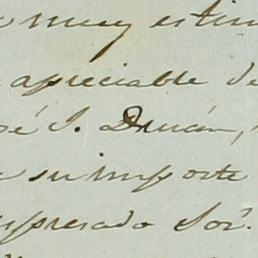 muy estim
apreciable de
sé J. Durán,
su importe
xpresado Sor.